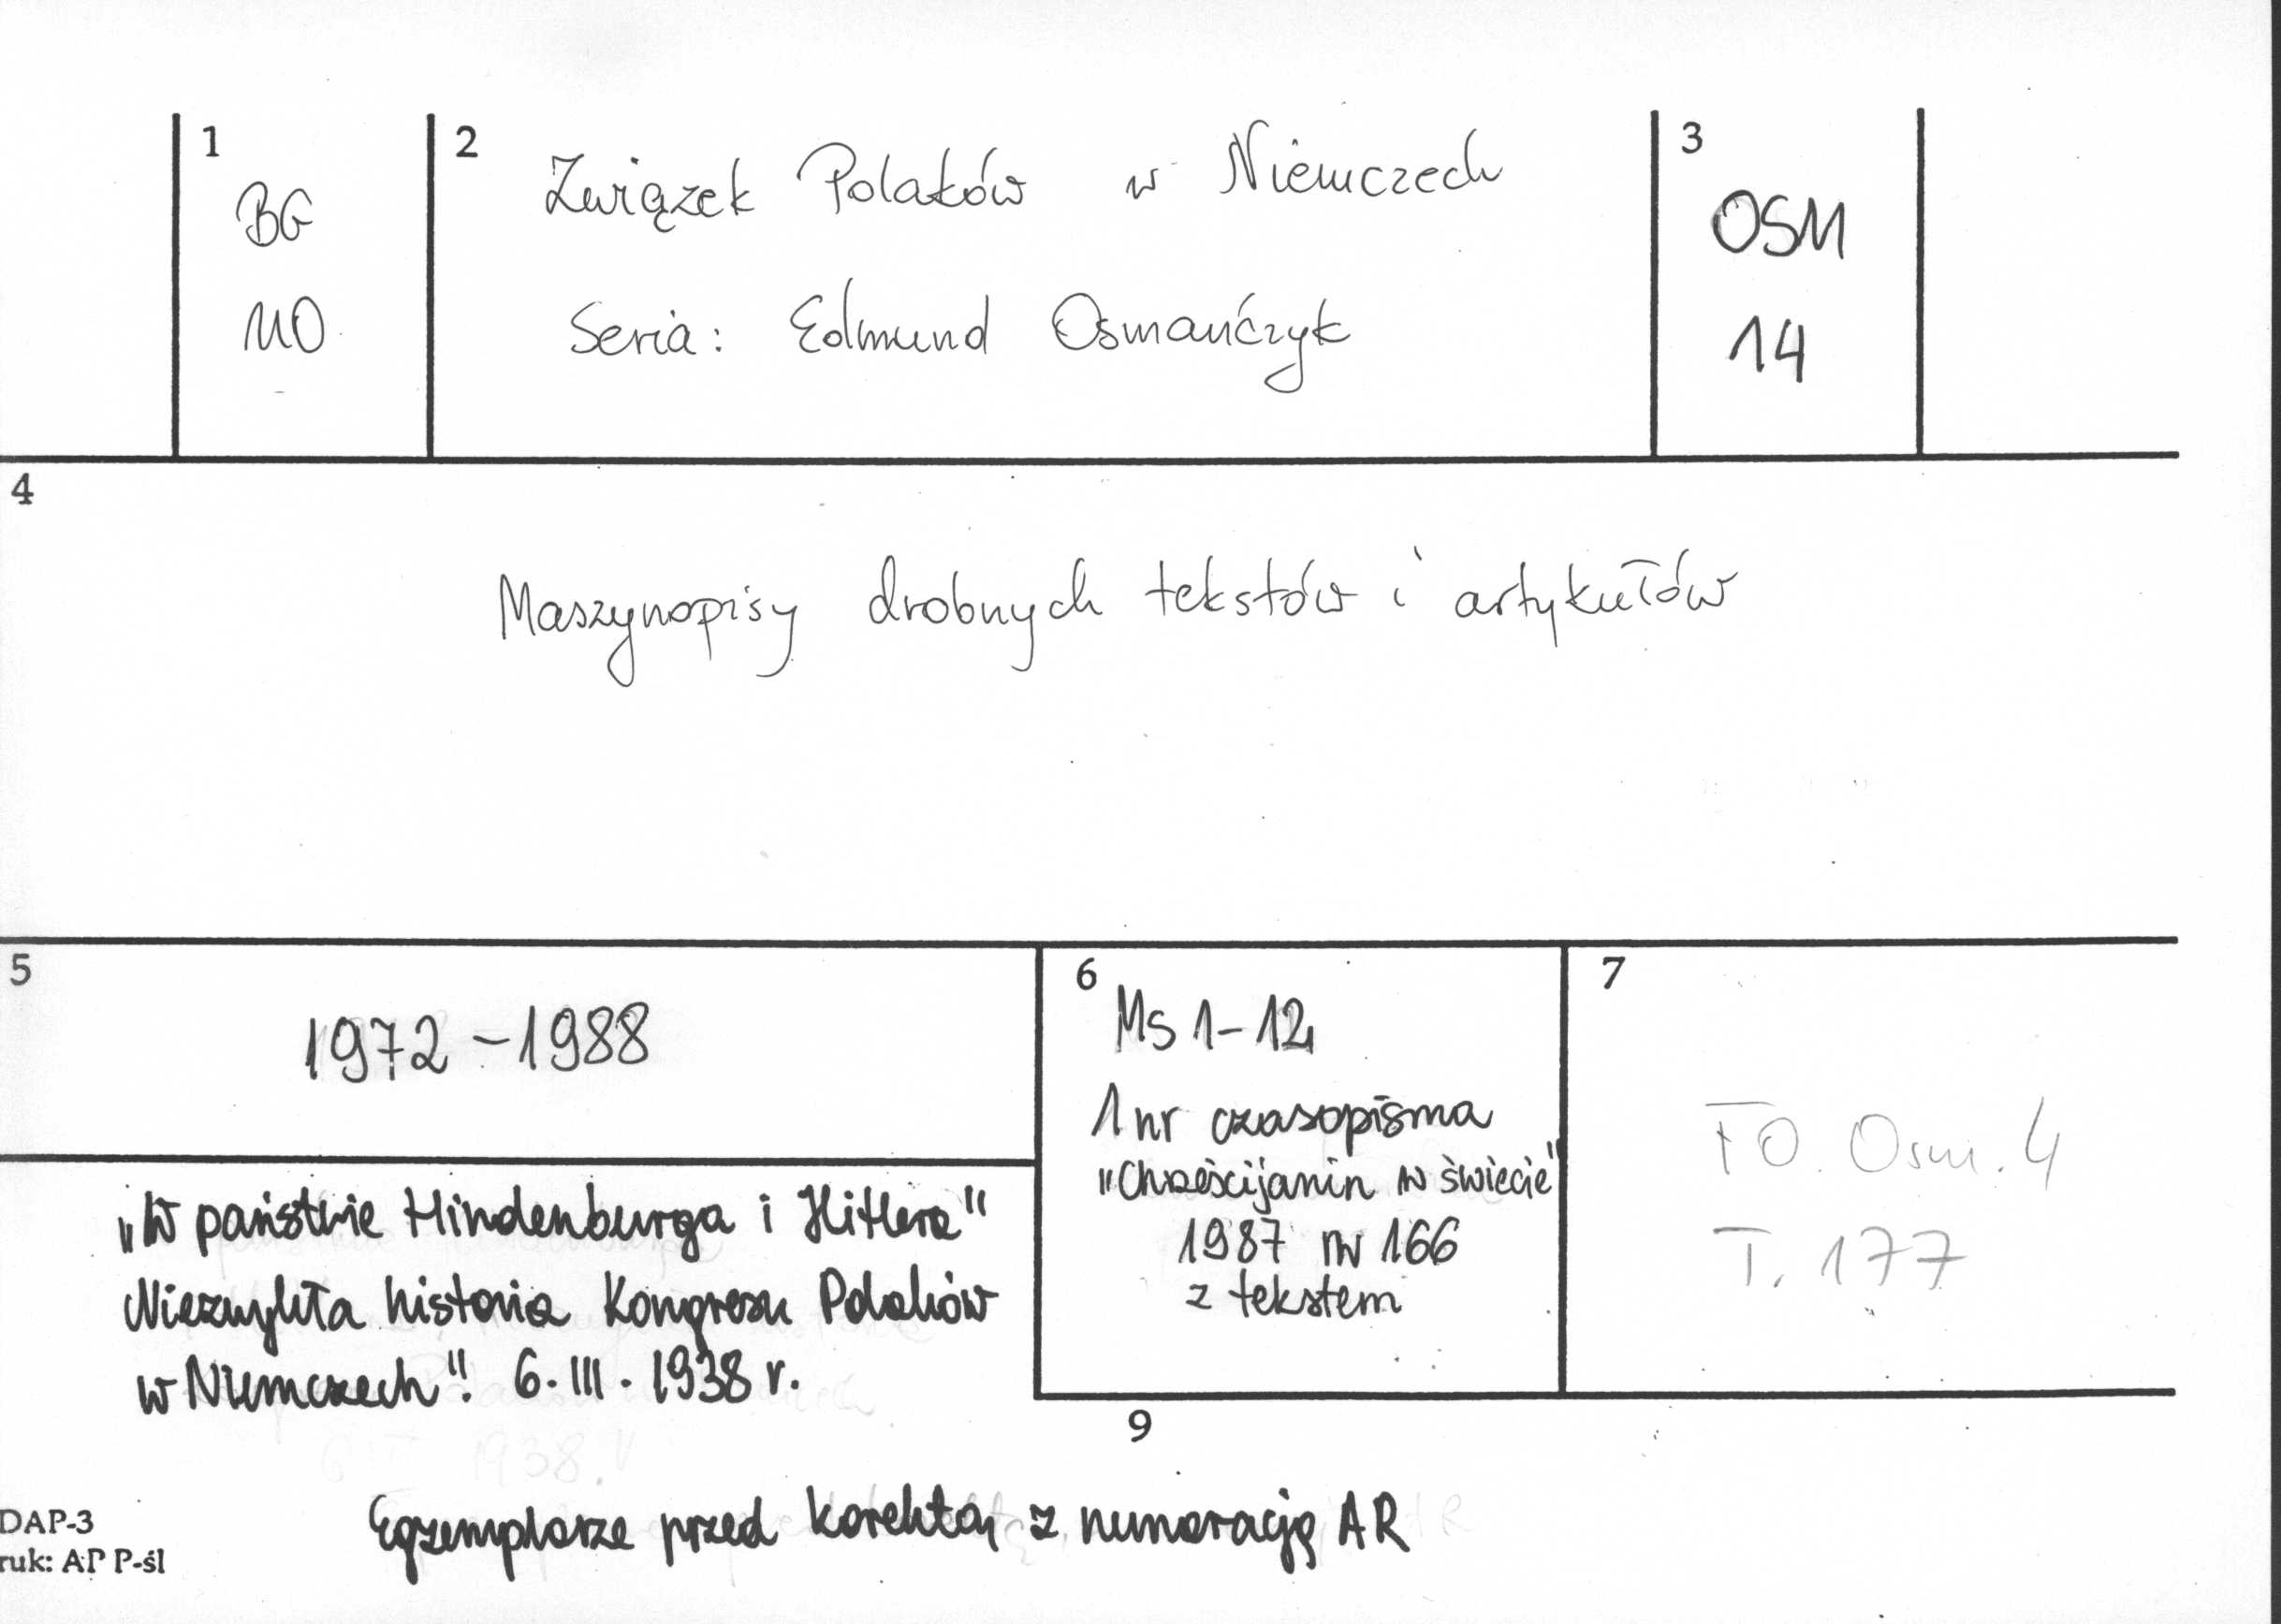 1
BG
MO
2
Związek Polaków w Niemczech
Seria: Edmund Osmańczyk
3
OSM
14
4
Maszynopisy drobnych tekstów i artykułów
5
1972-1988
"W państwie Hindenburga i Hitlera"
Niezwykła historia Kongresu Polaków
w Niemczech". 6.III.1938 r.
6
Ms 1-12
1 nr czasopisma
"Chrześcijanin w świecie"
1987 nr 166
z tekstem
7
FO. Osm. 4
T. 177
9
Egzemplarze przed korektą z numeracją AR
DAP-3
ruk: AP P-śl